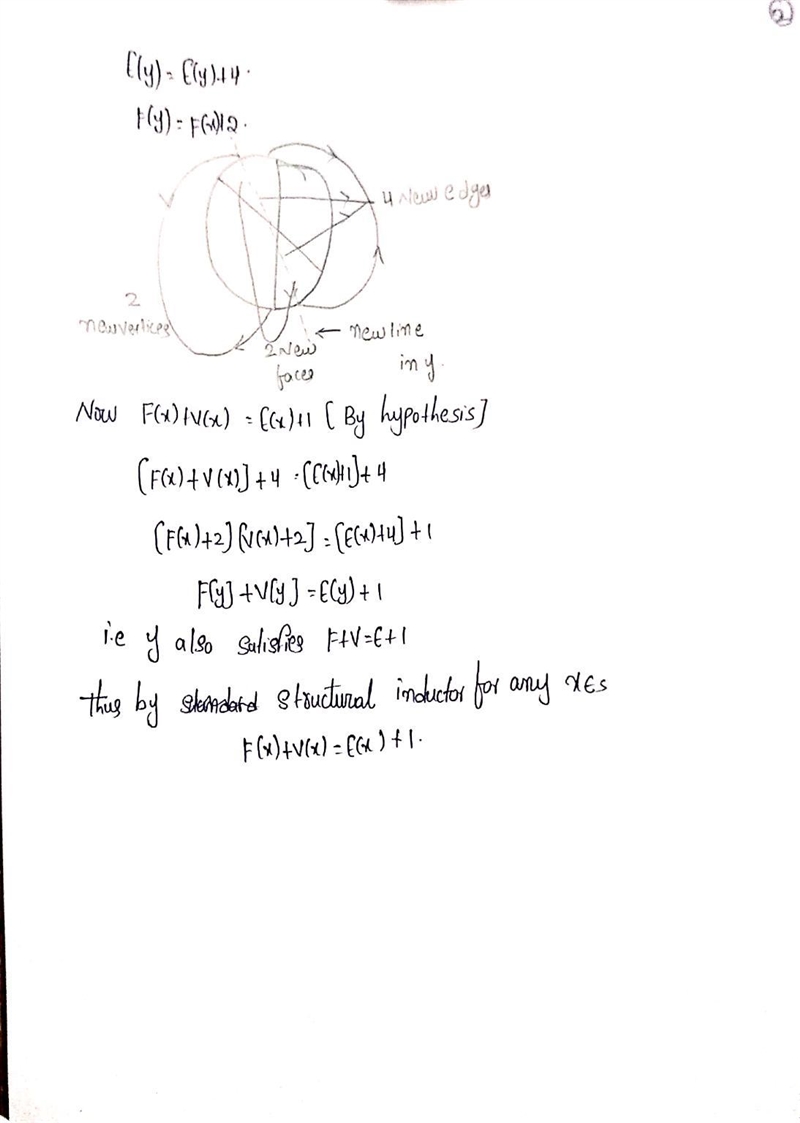 2
E(y) = E(y)+4.
F(y) = F(x)+2.
4 New edges
2
new vertices
← new line
in y.
2 New
faces
Now F(x)+V(x) = E(x)+1 [By hypothesis]
[F(x)+V(x)]+4 = [E(x)+1]+4
[F(x)+2][V(x)+2] = [E(x)+4]+1
F[y]+V[y] = E(y)+1
i.e y also satisfies F+V=E+1
thus by structural inductor for any x∈s
F(x)+V(x) = E(x)+1.